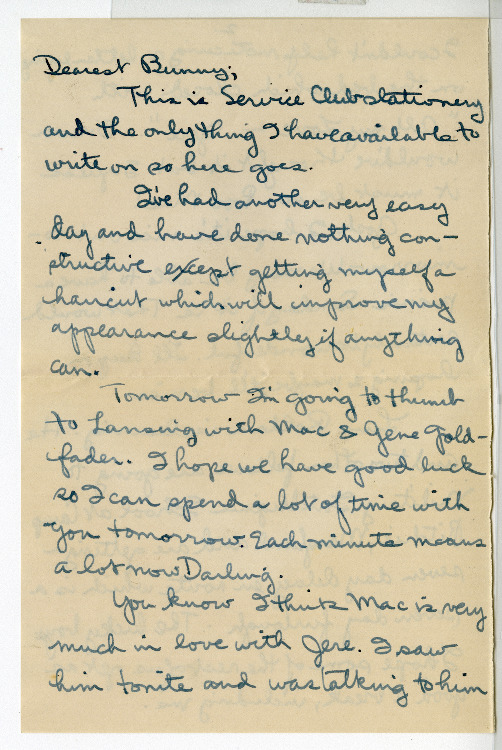 Dearest Bunny;
This is Service Club stationery
and the only thing I have available to
write on so here goes.
I've had another very easy
day and have done nothing con-
structive except getting myself a
haircut which will improve my
appearance slightly if anything
can.
Tomorrow I'm going to thumb
to Lansing with Mac & Gene Gold-
fader. I hope we have good luck
so I can spend a lot of time with
you tomorrow. Each minute means
a lot now Darling.
You know I think Mac is very
much in love with Jere. I saw
him tonite and was talking to him